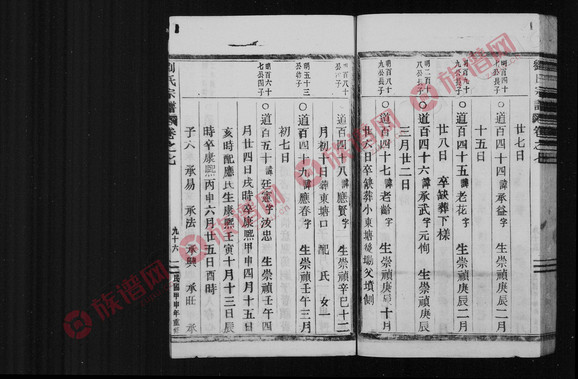 劉氏宗譜
卷之七
廿七日
明百四十
公長子
〇道百四十四 諱承益 字 生崇禎庚辰二月
十五日
明百九十
九公長子
〇道百四十五 諱老花 字 生崇禎庚辰二月
廿八日 卒缺葬下樣
明二百十
八公子
〇道百四十六 諱承武 字元恂 生崇禎庚辰
三月廿二日
明百八十
九公長子
〇道百四十七 諱老齡 字 生崇禎庚辰十月
廿六日 卒缺葬小東塘 父墳側
明百八十
公子
〇道百四十八 諱應賢 字 生崇禎辛巳十二
月初九日 葬東塘口 配 氏 女
明五十三
公子
〇道百四十九 諱應春 字 生崇禎壬午三月
初七日
明百六十
七公四子
〇道百五十 諱廷憲 字汝忠 生崇禎壬午四
月廿四日戌時 卒康熙甲申四月十五日
亥時 配應氏 生康熙壬寅十月十三日辰
時 卒康熙丙申六月廿五日酉時
子六 承易 承法 承興 承旺 承
劉氏宗譜
卷之七
九十六
民國甲申年重
族谱网